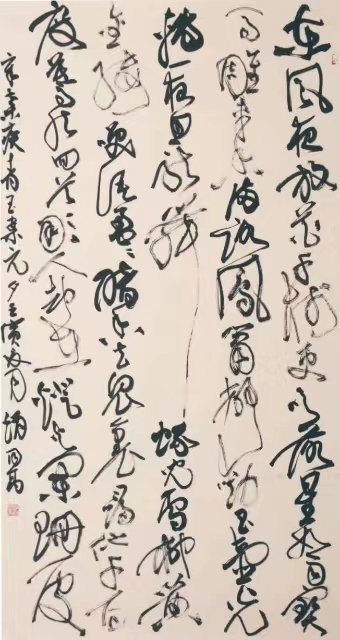 東風夜放花千樹更吹落星如雨寶
馬雕車香滿路鳳簫聲動玉壺光
轉一夜魚龍舞蛾兒雪柳黃
金縷笑語盈盈暗香去眾里尋他千百
度驀然回首那人却在燈火闌珊處
辛棄疾青玉案元夕